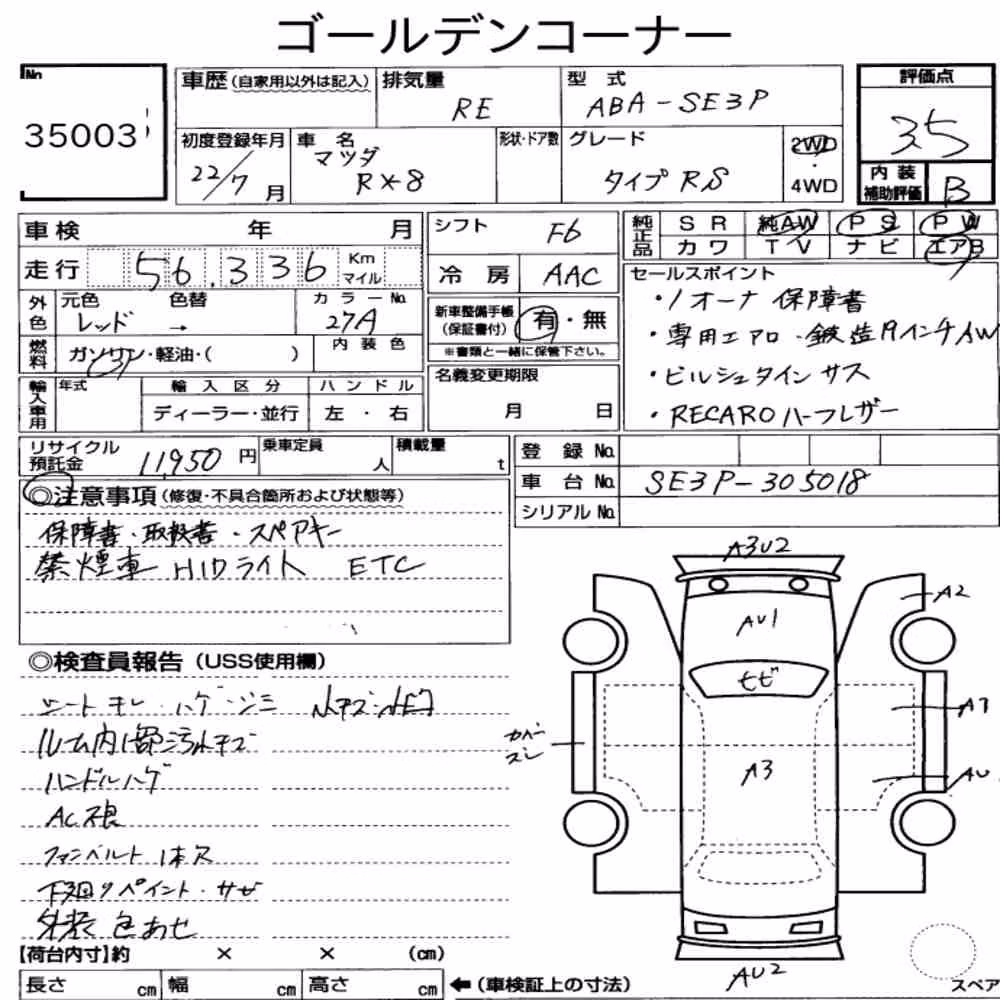 ゴールデンコーナー
No
35003
車歴(自家用以外は記入)
排気量
RE
型 式
ABA-SE3P
評価点
3.5
初度登録年月
22/7月
車 名
マツダ
RX-8
形状・ドア数
グレード
タイプRS
2WD
・
4WD
内 装
補助評価
B
車検 年 月
シフト
F6
純正品
S R 純AW P S P W
カワ T V ナビ エアB
走行 56,336 Km
マイル
冷 房 AAC
セールスポイント
・1オーナ 保障書
・専用エアロ・鍛造19インチAW
・ビルシュタインサス
・RECAROハーフレザー
外色
元色 色替
レッド →
カラーNo.
27A
新車整備手帳
(保証書付)
有・無
※書類と一緒に保管下さい。
燃料
ガソリン・軽油・( )
内 装 色
名義変更期限
月 日
輸入車用
年式
輸 入 区 分
ディーラー・並行
ハ ン ド ル
左 ・ 右
リサイクル
預託金
11,950円
乗車定員
人
積載量
t
登 録 No.
車 台 No. SE3P-305018
シリアルNo.
◎注意事項(修復・不具合箇所および状態等)
保障書・取扱書・スペアキー
禁煙車 HIDライト ETC
◎検査員報告(USS使用欄)
シートキレ・ハゲ・シミ
ルーム内1部汚れキズ
ハンドルハゲ
AC不良
ファンベルト1本欠
下廻りペイント・サビ
外装色あせ
A3U2
A2
AU1
ヒビ
カバー
スレ
A1
A3
AU
AU2
【荷台内寸】約 × × (cm)
長さ cm 幅 cm 高さ cm
←(車検証上の寸法)
スペア